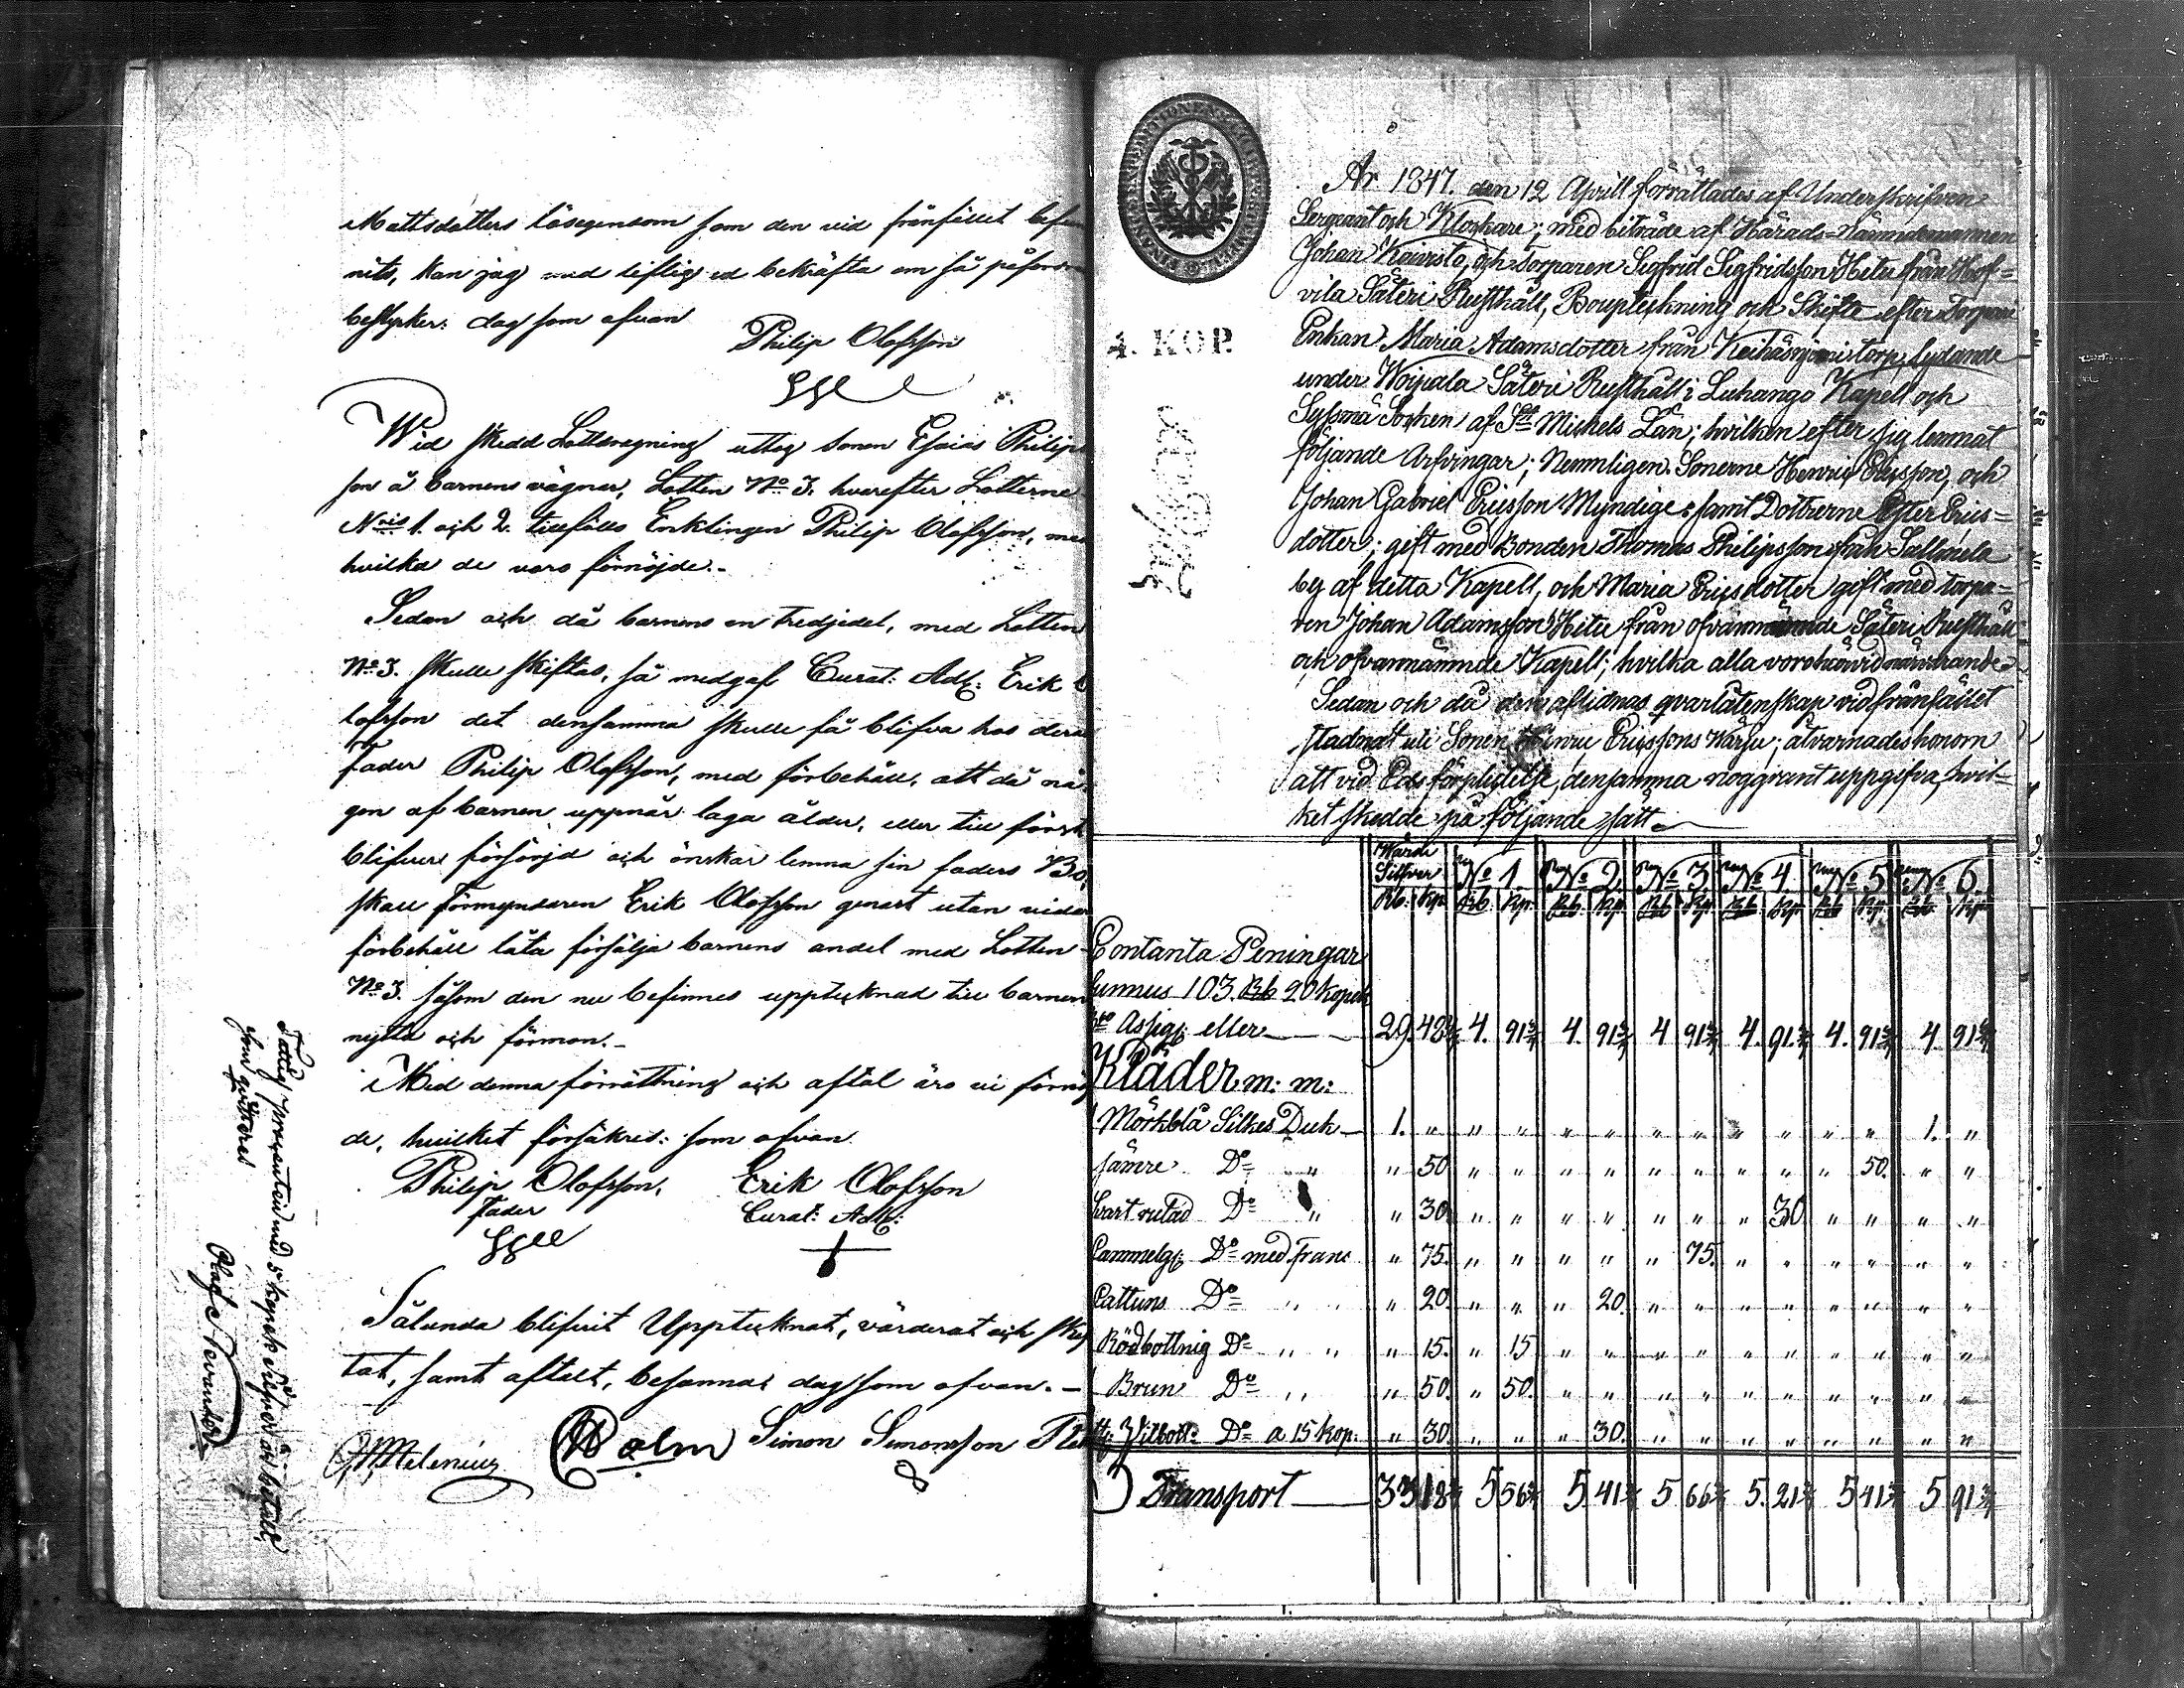 Mattsdotters lösegendom som den vid frånfället bef
nits, kan jag med liflig ed bekräfta om så påford
bestyrker: dag som ofvan
Philip Olofsson
Wid skedd Lottdragning uttog Sonen Esaias Philip
son å barnens vägnar, Lotten No 3. hvarefter Lotterne
Nris 1. och 2. tillföllo Enklingen Philip Olofsson, med
hvilka de voro förnöjde.-
Sedan och då barnens en tredjedel, med Lotten
No 3. skulle skiftas, så medgaf Curat: Adl: Erik O
lofsson det densamma skulle få blifva hos deras
Fader Philip Olofsson, med förbehåll, att då nå
gon af barnen uppnår laga ålder, eller till först
blifver försörjd och önskar lemna sin faders Bo,
skall Förmyndaren Erik Olofsson genast utan vidare
förbehåll låta försälja barnens andel med Lotten
No 3. såsom den nu befinnes upptecknad till barnens
nytta och förmon.-
Med denna förrättning och aftal äro vi förnöj
de, hvilket försäkras: som ofvan
Philip Olofsson, Erik Olofsson
Fader Curat: Adl:
Sålunda blifvit Upptecknat, värderat och skif
tat, samt aftalt, besannas dag som ofvan.-
Melenius Holm Simon Simonsson
Fattig procenten med 5 kopek silfver är betald,
som qvitteras
4. KOP.
År 1847. den 12 Aprill förrättades af Underskrifven
Sergeant och Klockare, med biträde af Härads-Nämndemannen
Johan Koivisto, och Torparen Sigfrid Sigfridsson Hitu från Hof=
vila Säteri Rusthåll, Bouptekning och Skifte efter Torpare
Enkan Maria Adamsdotter från torp, lydande
under Woipala Säteri Rusthåll i Luhango Kapell och
Sysmä Socken af St Michels Län; hvilken efter sig lemnat
följande Arfvingar; Nemnligen Sönerne Henric Ericsson, och
Johan Gabriel Ericsson Myndige: samt Döttrerne Ester Erics=
dotter; gift med Bonden Thomas Philipsson från
by af detta Kapell, och Maria Ericsdotter gift med torpa=
ren Johan Adamsson Hitu från ofvannämnde Säteri Rusthåll
och ofvannämnde Kapell; hvilka alla voro härvid närvarande.
Sedan och då den aflidnas qvarlåtenskap vid frånfället
stadnat uti Sonen Henric Ericssons Wärjo; åtvarnades honom
att vid Eds förpligtelse, densamma noggrant uppgifva, hvil=
ket skedde på följande sätt
Wärde Silfver No 1. No 2. No 3. No 4. No 5 No 6.
Rb. Kp. Rb. Kp. Rb. Kp. Rb. Kp. Rb. Kp. Rb. Kp. Rb. Kp.
Contanta Peningar
funnus 103. Rb 20 kopek
Bco Assign: eller 29. 48 4/7 4. 91 3/7 4. 91 3/7 4 91 3/7 4. 91 3/7 4. 91 3/7 4 91 3/7
Kläder m: m:
1 Mörkblå Silkes Duk 1. " " " " " " " " " " " 1. "
sämre Do " " 50 " " " " " " " " " 50. " "
Svart rutad Do " " 30. " " " " " " " 30 " " " "
Cammelg: Do med frans " 75. " " " " " 75. " " " " " "
Cattuns Do " " " 20. " " " 20. " " " " " " " "
Rödbottnig Do " " " 15. " 15 " " " " " " " " " "
1 Brun Do " " 50. " 50. " " " " " " " " " "
Do a 15 kop. " 30. " " " 30. " " " " " " " "
Transport 33 18 4/7 5 56 3/7 5 41 3/7 5 66 3/7 5. 21 3/7 5 41 3/7 5 91 3/7